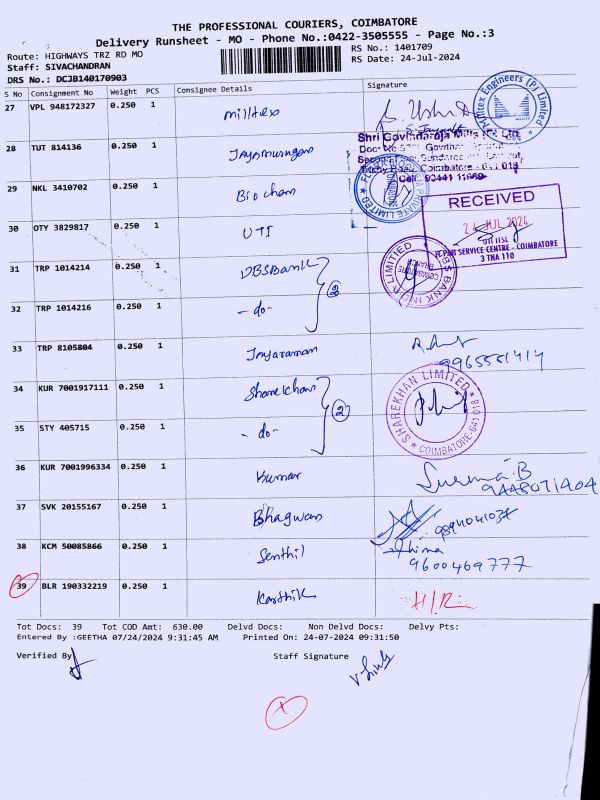 THE PROFESSIONAL COURIERS, COIMBATORE
Delivery Runsheet - MO - Phone No.:0422-3505555 - Page No.:3
Route: HIGHWAYS TRZ RD MO
RS No.: 1401709
Staff: SIVACHANDRAN
RS Date: 24-Jul-2024
DRS No.: DCJB140170903
S No Consignment No Weight PCS Consignee Details Signature
27 VPL 948172327 0.250 1 milltex
Milltex Engineers (P) Limited
28 TUT 814136 0.250 1 Jayamurugan
Shri Govindaraja Mills
29 NKL 3410702 0.250 1 Biocham
30 OTY 3829817 0.250 1 UTI
RECEIVED
24 JUL 2024
UTI ITSL
PAN SERVICE CENTRE - COIMBATORE
3 TNA 110
31 TRP 1014214 0.250 1 DBS Bank
DBS BANK INDIA LIMITED
COIMBATORE BRANCH
32 TRP 1014216 0.250 1 -do- 2
33 TRP 8105804 0.250 1 Jayaraman
9965551414
34 KUR 7001917111 0.250 1 Sharekhan
SHAREKHAN LIMITED
COIMBATORE-641018
35 STY 405715 0.250 1 -do- 2
36 KUR 7001996334 0.250 1 Kumar
9448071404
37 SVK 20155167 0.250 1 Bhagwan
38 KCM 50085866 0.250 1 Senthil
9600469777
39 BLR 190332219 0.250 1 Karthik H/R
Tot Docs: 39 Tot COD Amt: 630.00 Delvd Docs: Non Delvd Docs: Delvy Pts:
Entered By :GEETHA 07/24/2024 9:31:45 AM Printed On: 24-07-2024 09:31:50
Verified By
Staff Signature